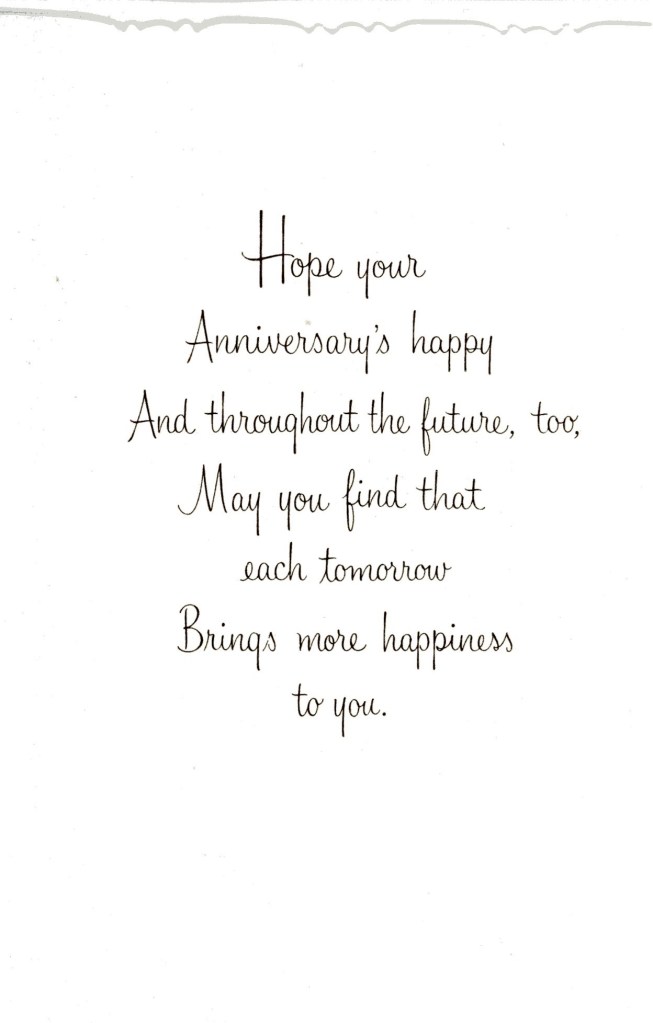 Hope your
Anniversary's happy
And throughout the future, too,
May you find that
each tomorrow
Brings more happiness
to you.